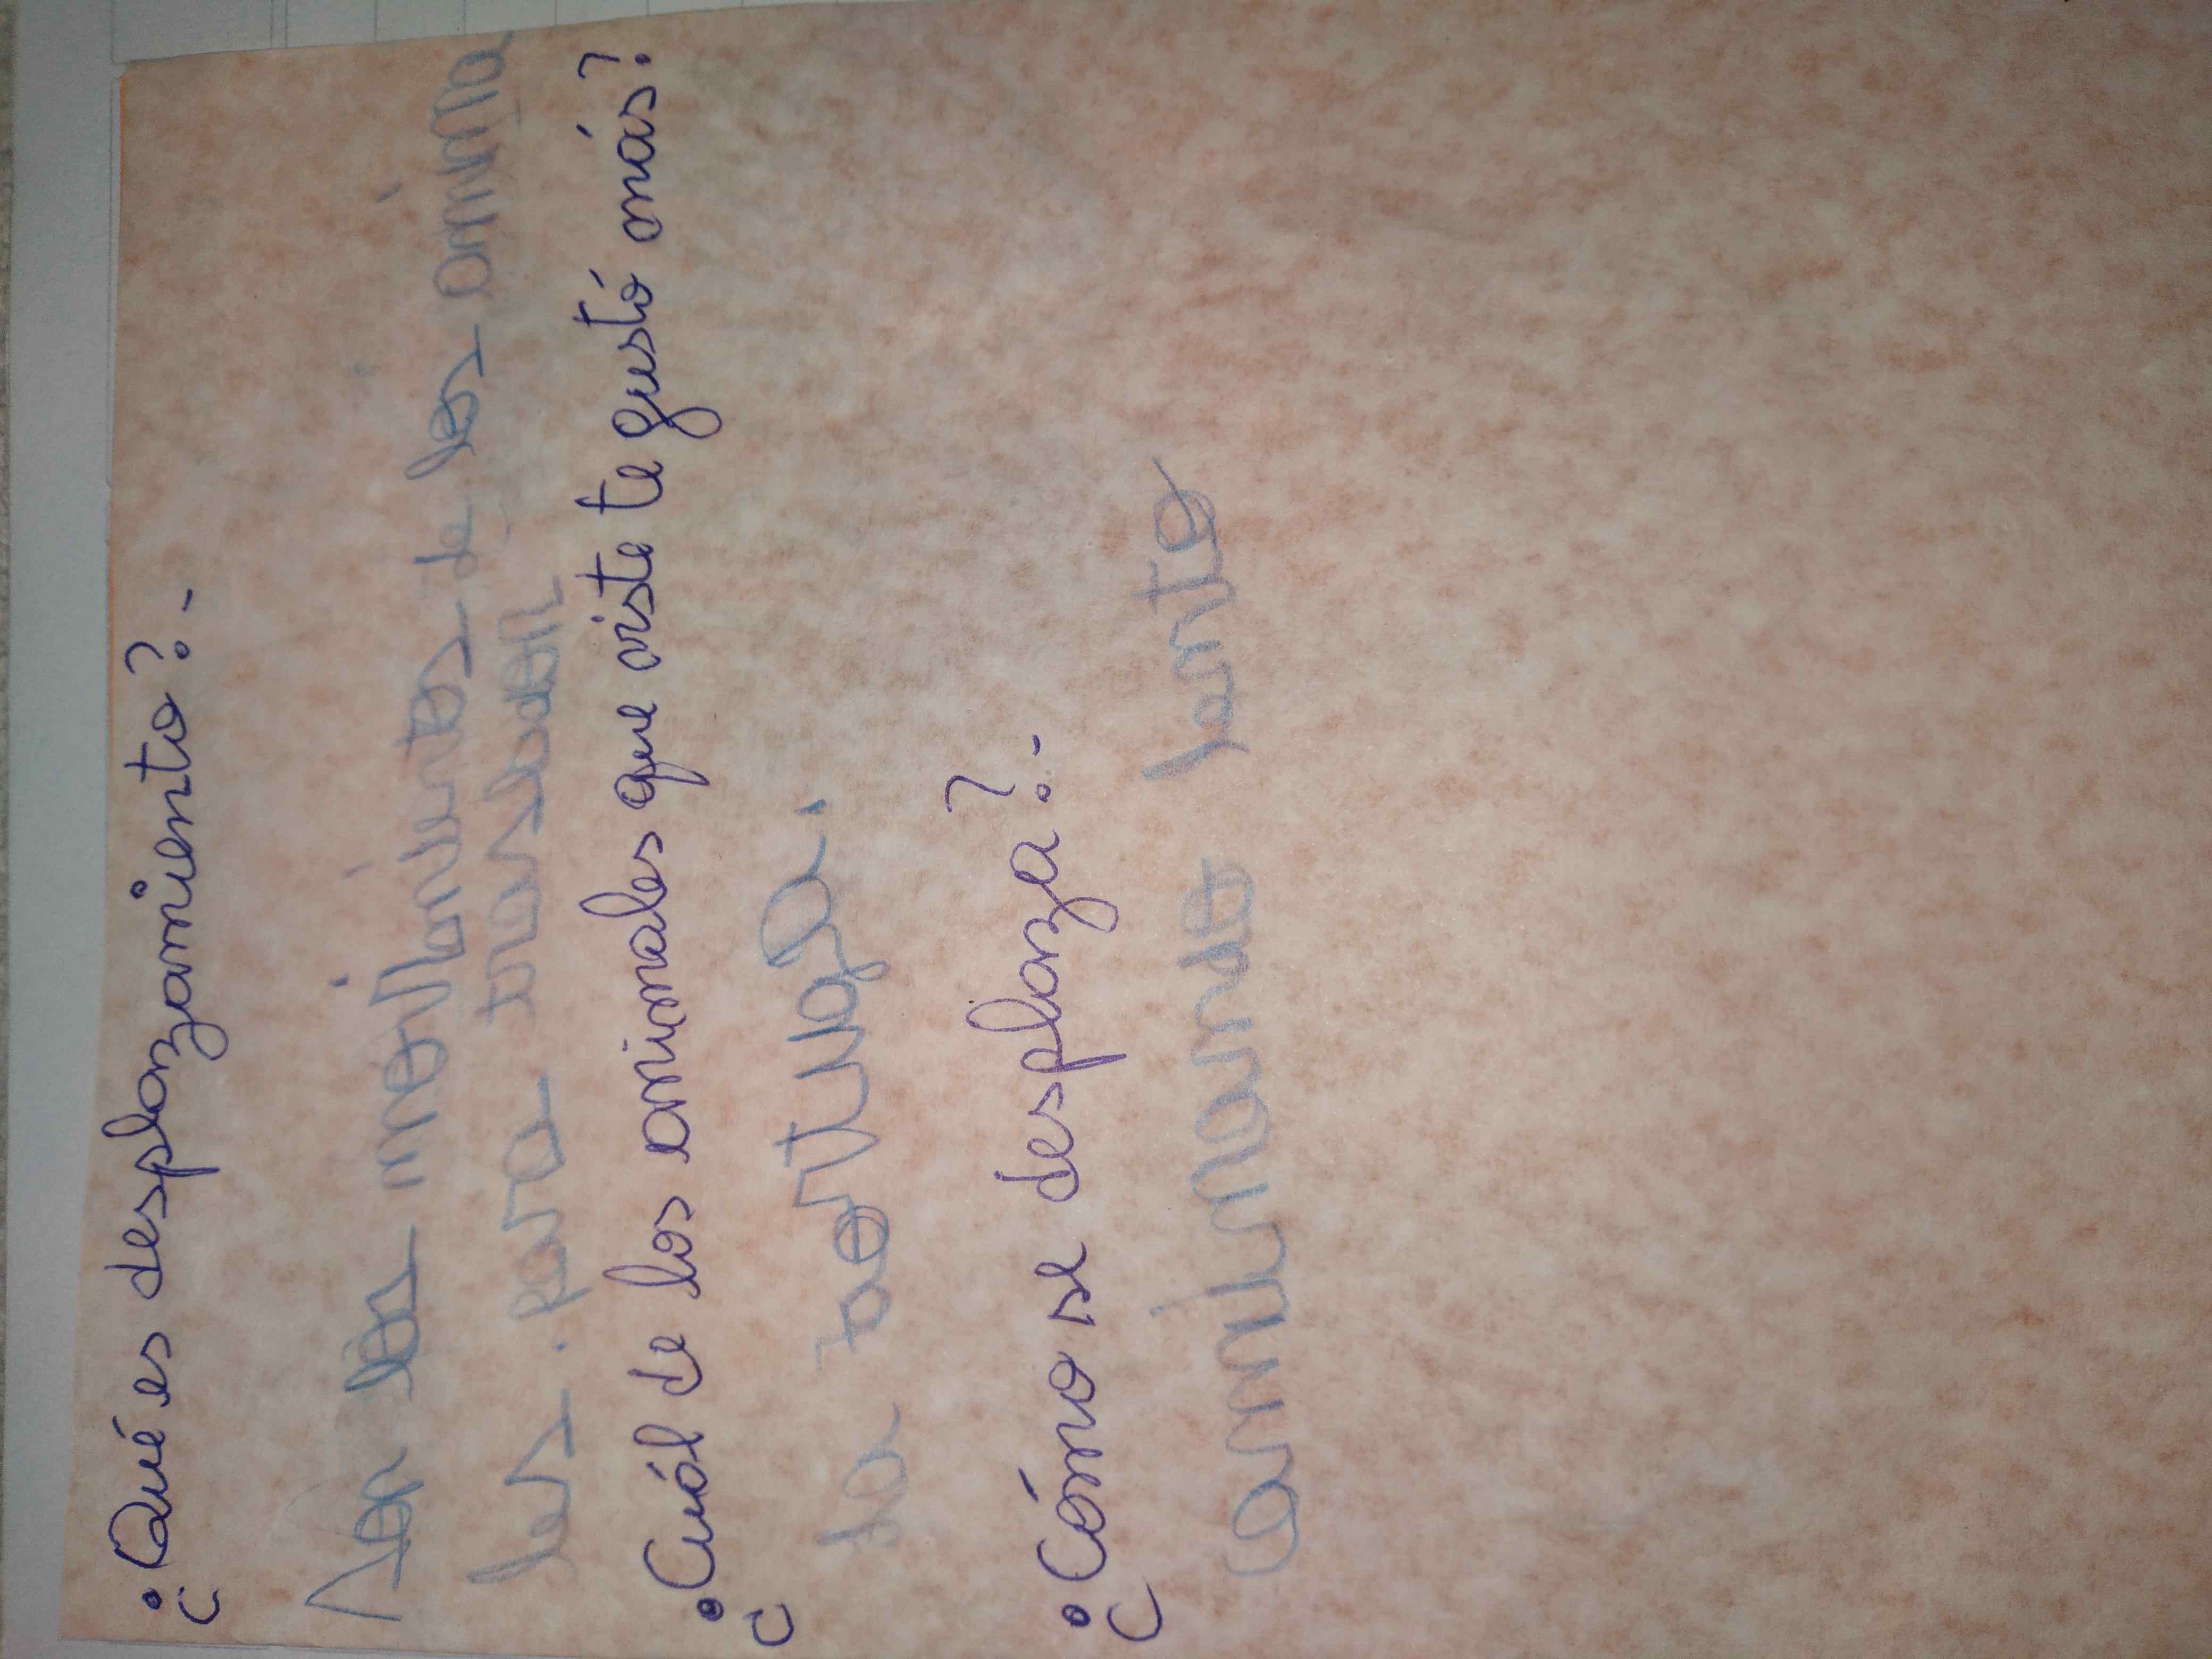 ¿Qué es desplazamiento?.-
Son los movimientos de los anima
les. para
¿Cuál de los animales que viste te gustó más?
La tortuga.
¿Cómo se desplaza?.-
caminando lento